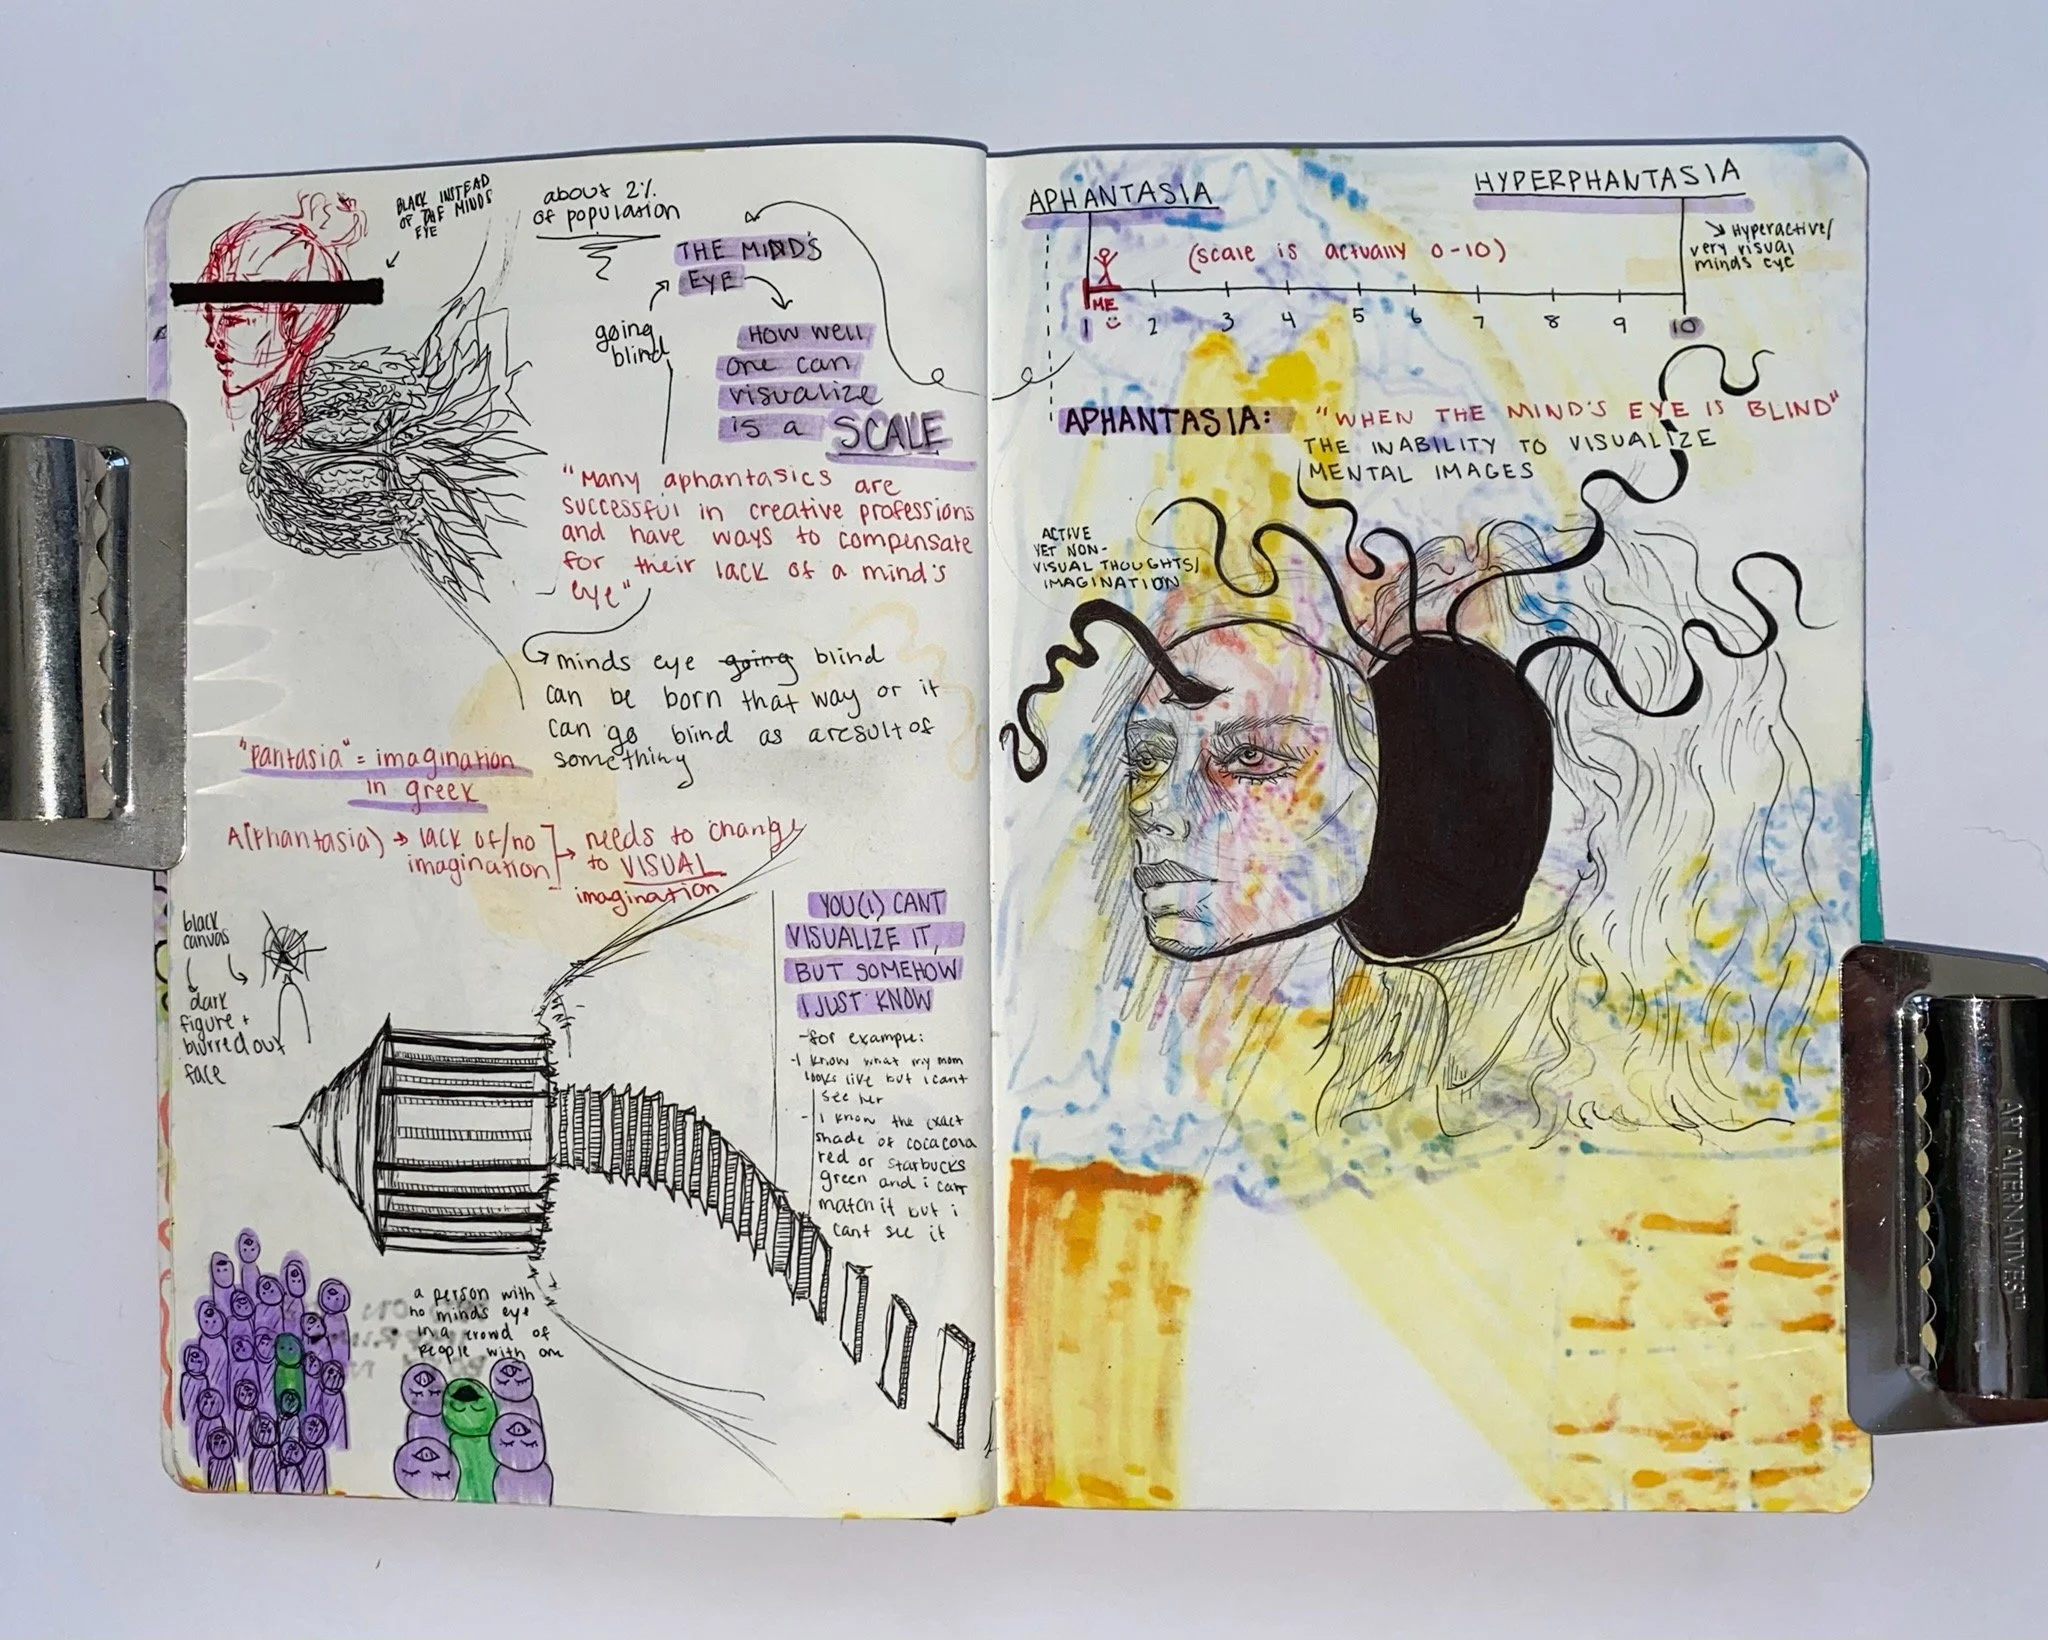 BLACK INSTEAD
OF THE MINDS
EYE
about 2%
of population
THE MIND'S
EYE
going
blind
HOW WELL
one can
visualize
is a SCALE
"Many aphantasics are
successful in creative professions
and have ways to compensate
for their lack of a mind's
eye"
minds eye going blind
can be born that way or it
can go blind as a result of
something
"pantasia" = imagination
in greek
A(Phantasia) → lack of/no
imagination
needs to change
to VISUAL
imagination
black
canvas
dark
figure +
blurred out
face
YOU(I) CANT
VISUALIZE IT,
BUT SOMEHOW
I JUST KNOW
- for example:
- I know what my mom
looks like but i cant
see her
- I know the exact
shade of cocacola
red or starbucks
green and i can
match it but i
cant see it
a person with
no minds eye
in a crowd of
people with one
APHANTASIA
HYPERPHANTASIA
Hyperactive/
very visual
minds eye
(scale is actually 0-10)
ME
1 2 3 4 5 6 7 8 9 10
APHANTASIA: "WHEN THE MIND'S EYE IS BLIND"
THE INABILITY TO VISUALIZE
MENTAL IMAGES
ACTIVE
YET NON-
VISUAL THOUGHTS/
IMAGINATION
ART ALTERNATIVES™